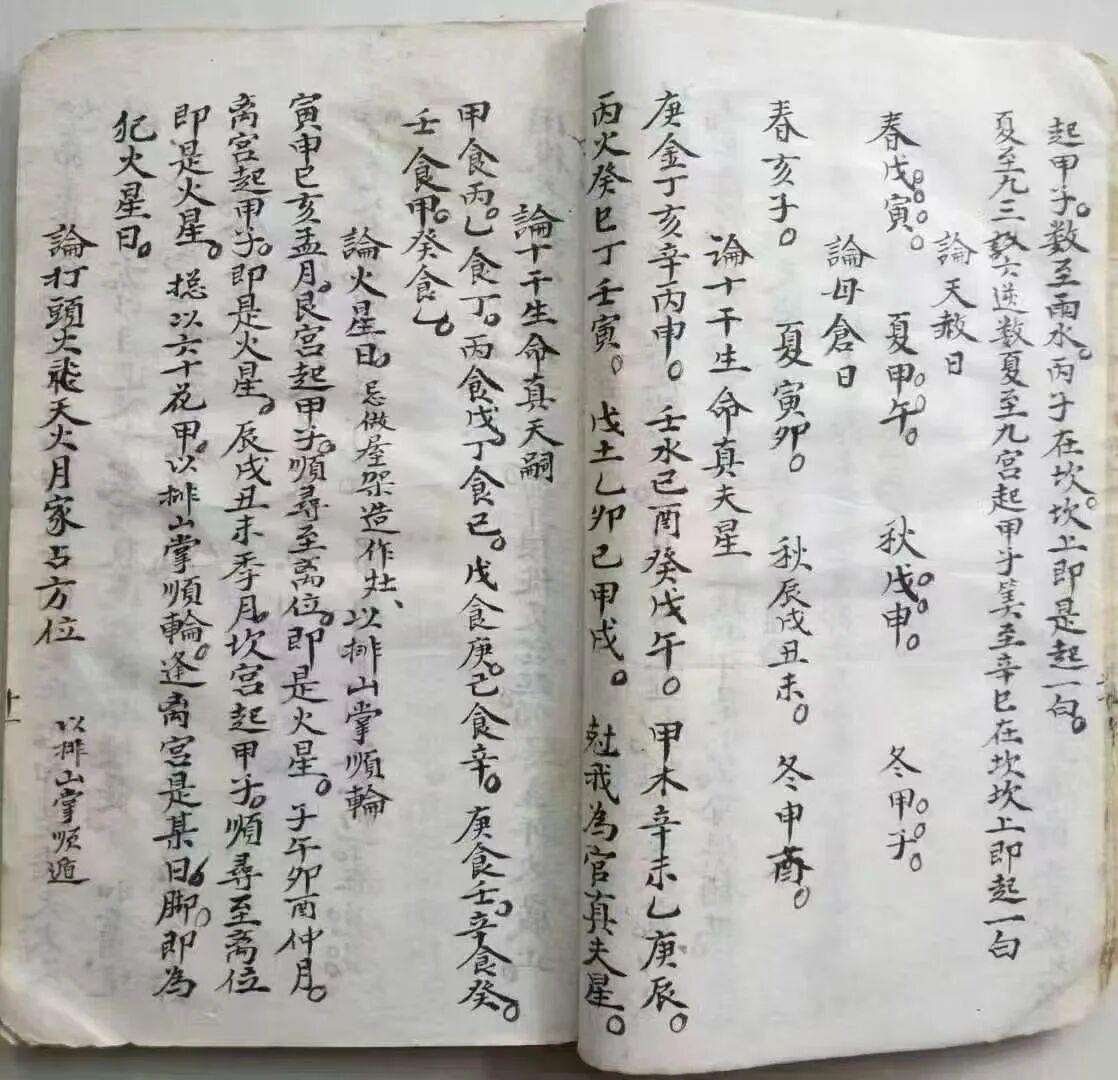 起甲子。数至雨水。丙子在坎。坎上即是起一白。
夏至九三六逆数夏至九宫起甲子筭至辛巳在坎坎上即起一白
論天赦日
春戊寅。夏甲午。秋戊申。冬甲子。
論母倉日
春亥子。夏寅卯。秋辰戌丑未。冬申酉。
論十干生命真夫星
庚金丁亥辛丙申。壬水己酉癸戊午。甲木辛未乙庚辰。
丙火癸巳丁壬寅。戊土乙卯己甲戌。尅我為官真夫星。
論十干生命真天嗣
甲食丙。乙食丁。丙食戊。丁食己。戊食庚。己食辛。庚食壬。辛食癸。
壬食甲。癸食乙。
論火星日。忌做屋架造作灶、以排山掌順輪
寅申巳亥孟月。艮宫起甲子。順尋至离位。即是火星。子午卯酉仲月。
离宫起甲子。即是火星。辰戌丑未季月。坎宫起甲子。順尋至离位
即是火星。捴以六十花甲。以排山掌順輪。逢离宫是某日。脚。即為
犯火星日。
論打頭火飛天火月家占方位 以排山掌順遁
十一